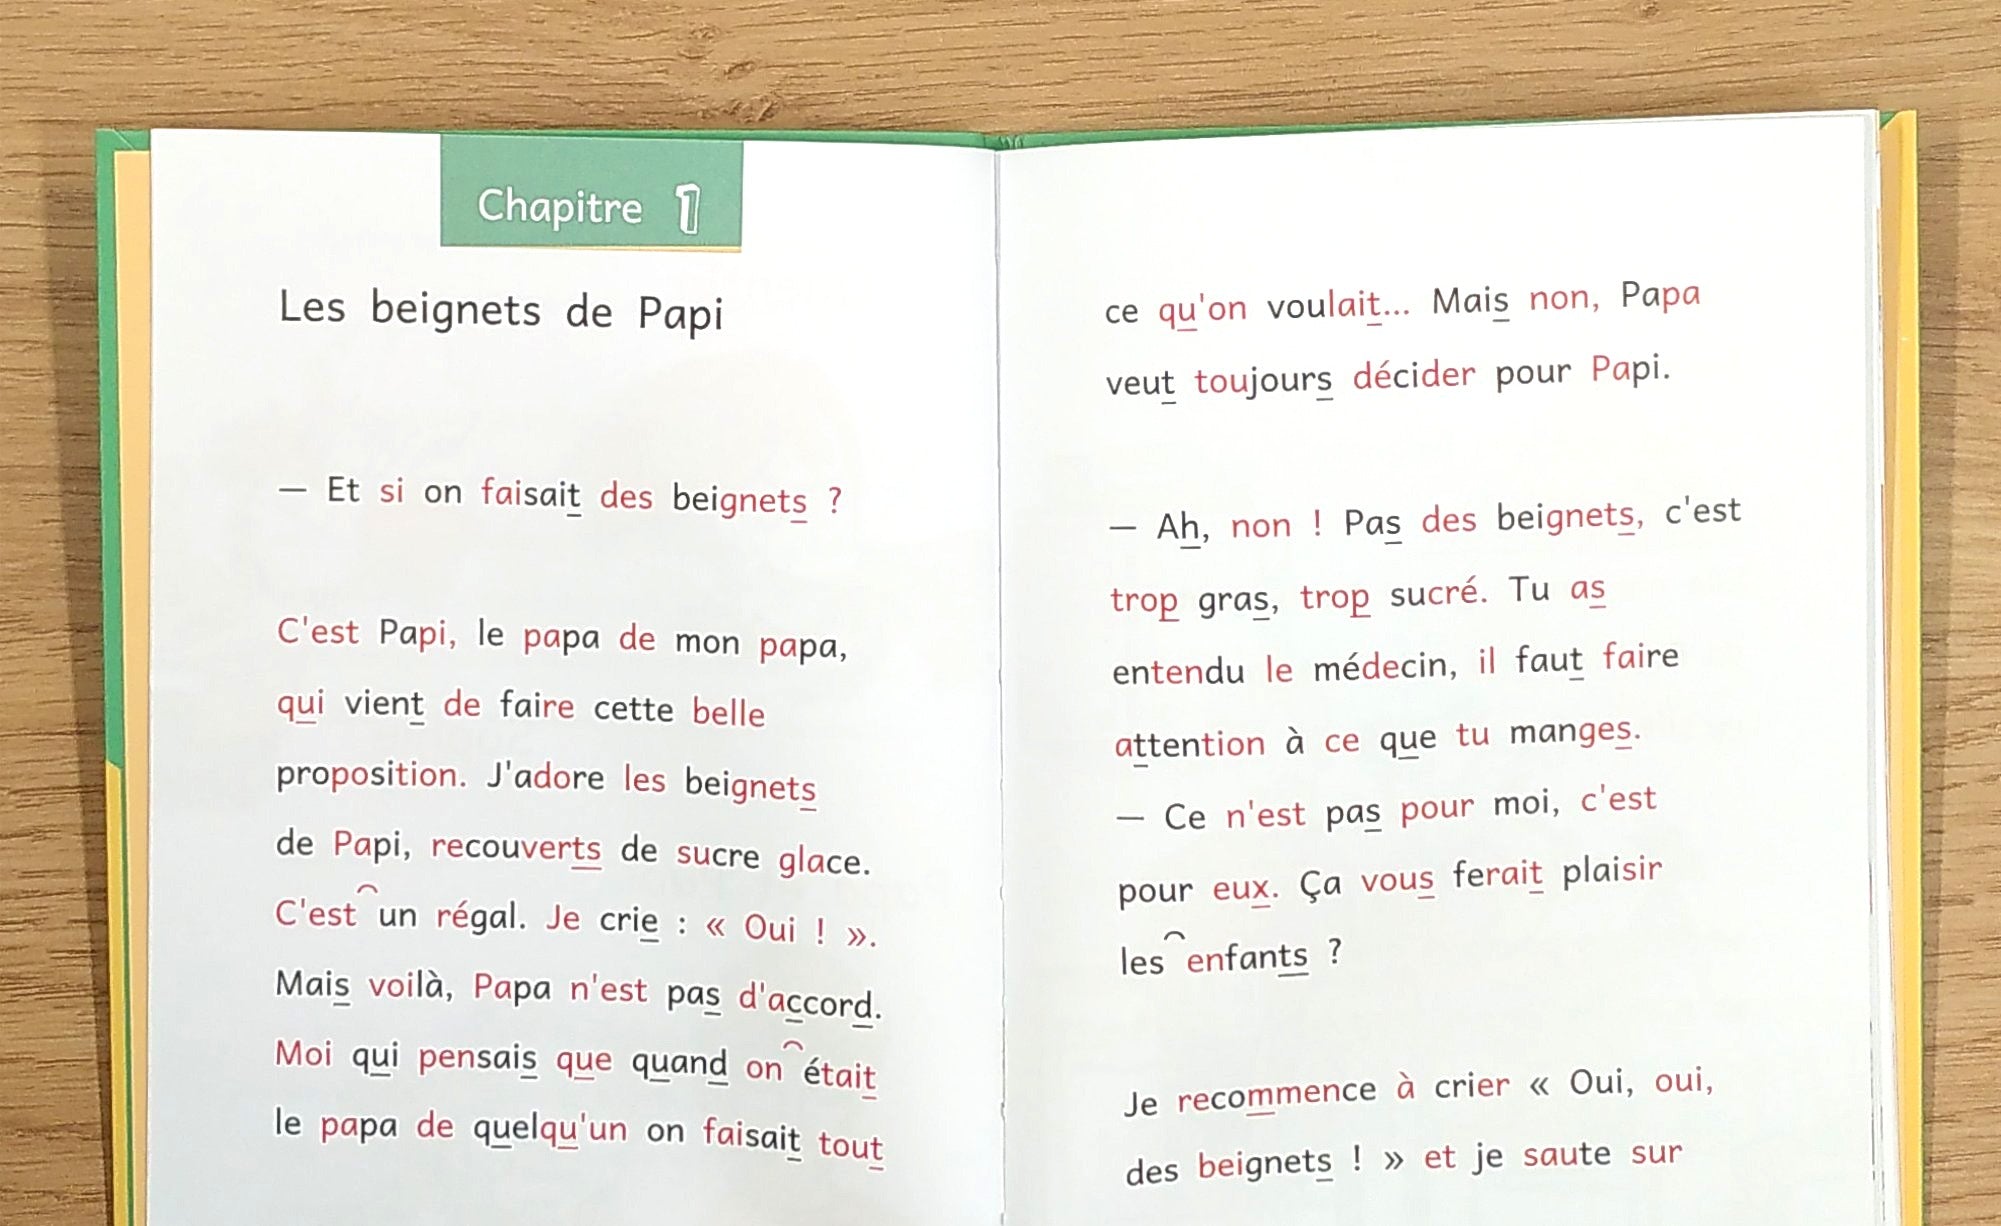 Chapitre 1
Les beignets de Papi
— Et si on faisait des beignets ?
C'est Papi, le papa de mon papa,
qui vient de faire cette belle
proposition. J'adore les beignets
de Papi, recouverts de sucre glace.
C'est un régal. Je crie : « Oui ! ».
Mais voilà, Papa n'est pas d'accord.
Moi qui pensais que quand on était
le papa de quelqu'un on faisait tout
ce qu'on voulait... Mais non, Papa
veut toujours décider pour Papi.
— Ah, non ! Pas des beignets, c'est
trop gras, trop sucré. Tu as
entendu le médecin, il faut faire
attention à ce que tu manges.
— Ce n'est pas pour moi, c'est
pour eux. Ça vous ferait plaisir
les enfants ?
Je recommence à crier « Oui, oui,
des beignets ! » et je saute sur